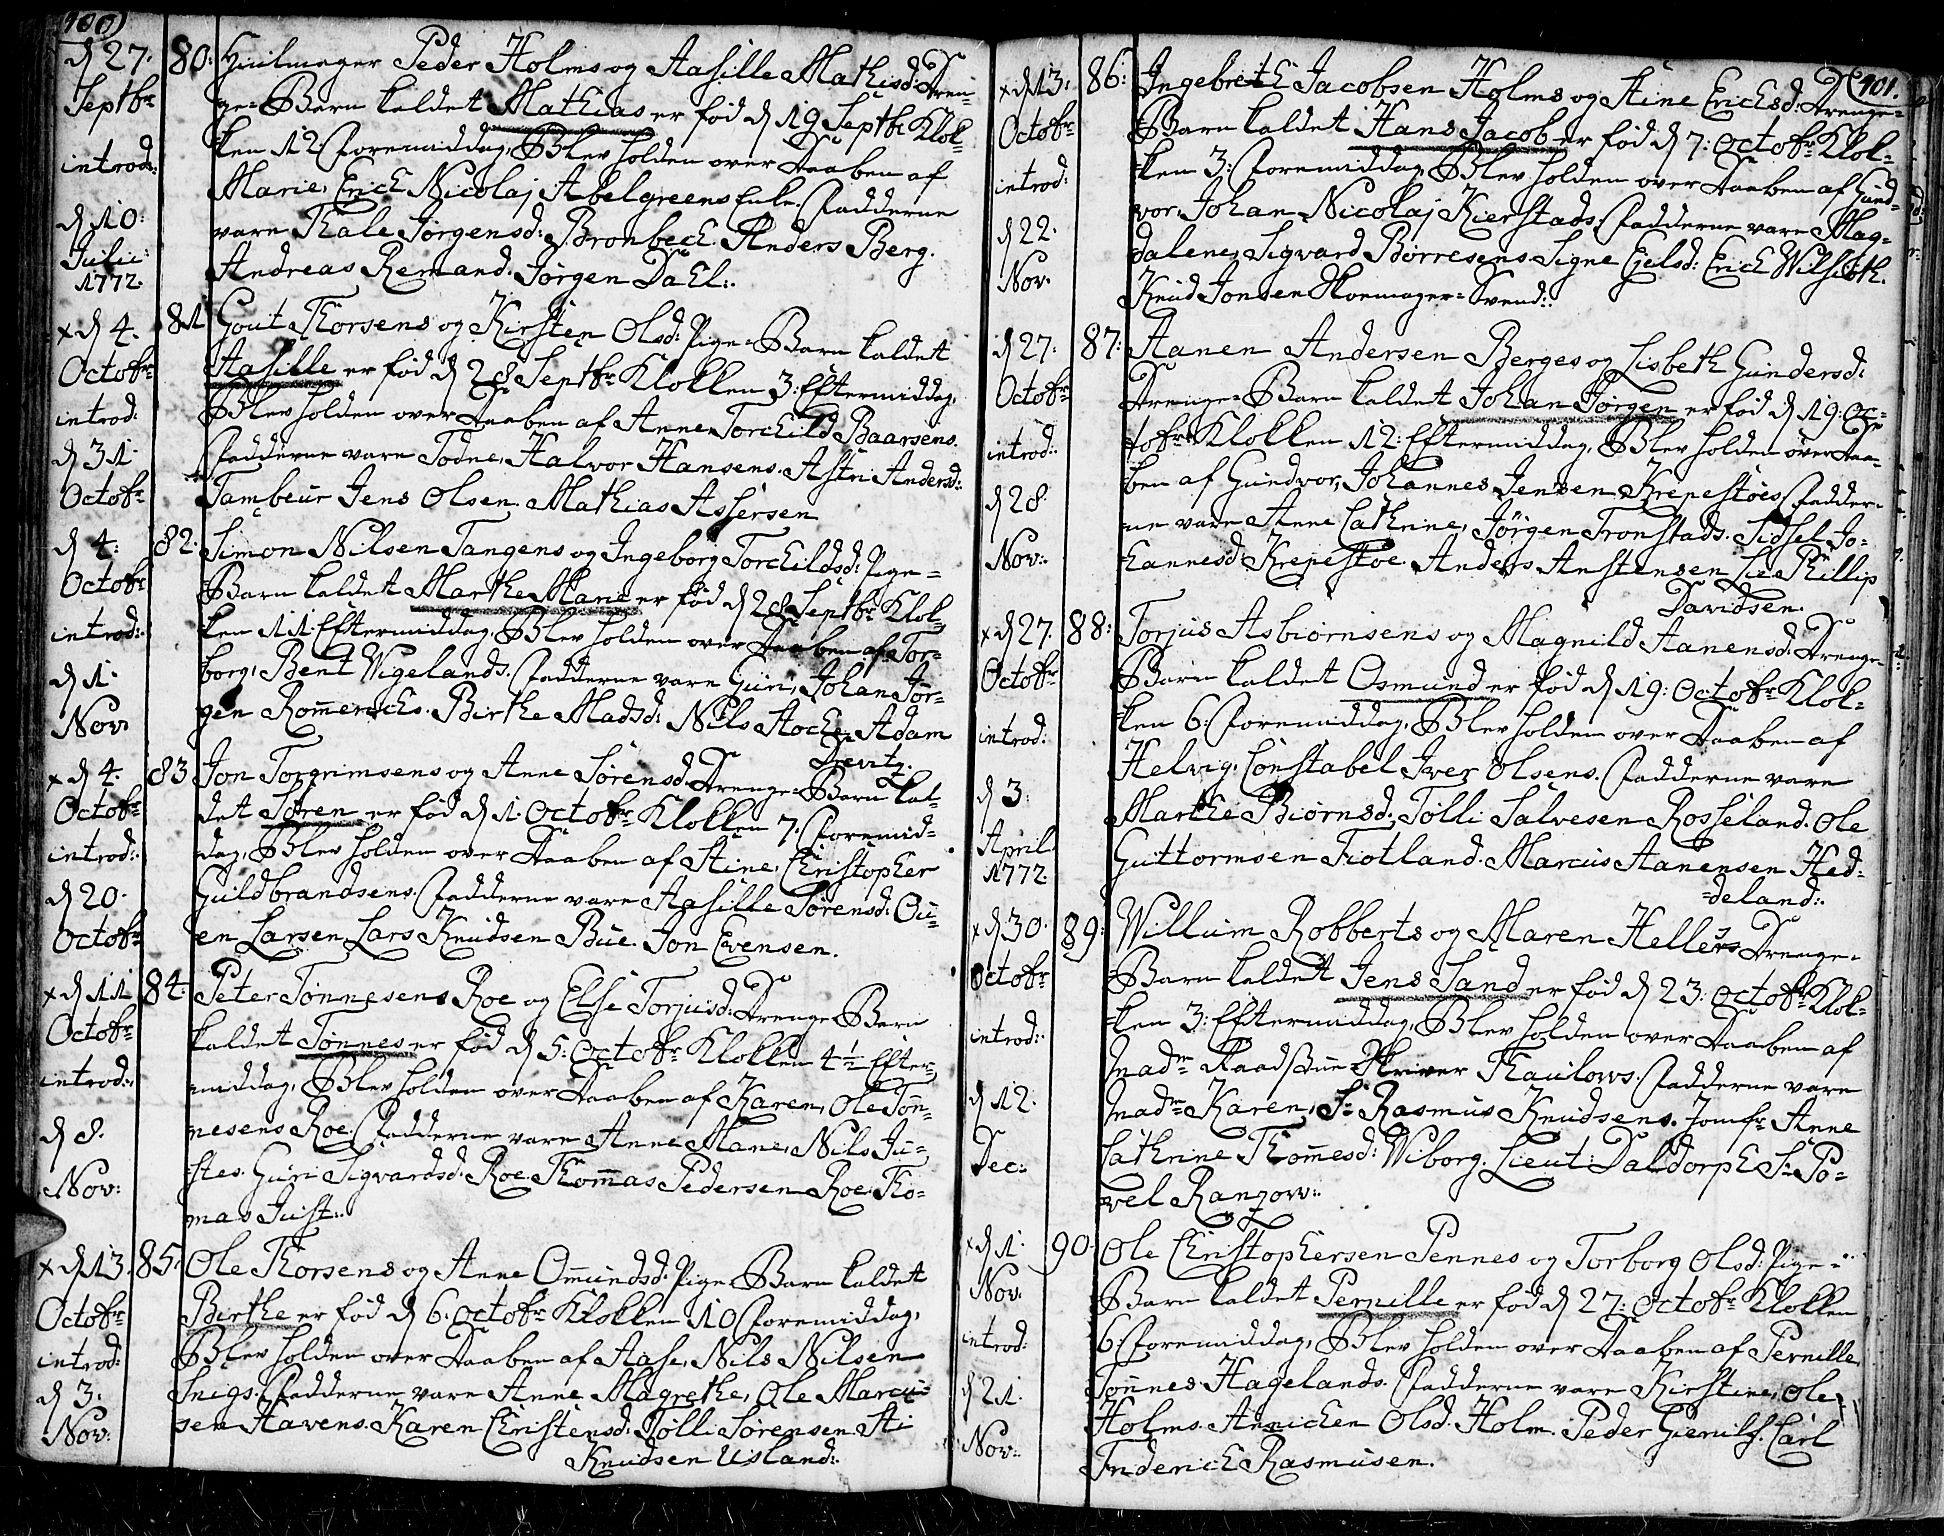 400)
d 27. Septbr introd: d 10: Julii: 1772.
80: Huulmager Peder Holms og Aasille Mathisd: Dren-
ge-Barn kaldet Mathias er fød d 19 Septbr Klok-
ken 12 Formiddag, Blev holden over Daaben af
Marie, Erich Nicolaj Abelgreens Enke. Fadderne
vare Thale Jørgensd: Bronbech. Anders Berg.
Andreas Remand. Jørgen Dahl:.
x d 4. Octobr introd: d 31. Octobr
81 Gout Thorsens og Kirsten Olsd: Pige-Barn kaldet
Aasille er fød d 28 Septbr Klokken 3: Eftermiddag,
Blev holden over Daaben af Anne, Torchild Baarsens.
Fadderne vare Todne, Halvor Hansens. Astri Andersd:
Tambeur Jens Olsen. Mathias Assersen
d 4: Octobr introd:. d 1. Nov:
82. Simon Nilsen Tangens og Ingeborg Torchildsd: Pige-
Barn kaldet Marthe Marie er fød d 28 Septbr Klok-
ken 11 Eftermiddag, Blev holden over Daaben af Tor-
borg, Bent Wigelands. Fadderne vare Guri, Johan Jør-
gen Romerichs. Birthe Madsd: Nils Aoche. Adam
Drevitz.
x d 4. Octobr introd:. d 20. Octobr
83 Jon Torgrimsens og Anne Sørensd: Drenge-Barn kal-
det Søren er fød d 1. Octobr Klokken 7. Formid-
dag, Blev holden over Daaben af Stine, Christopher
Guldbrandsens. Fadderne vare Aasille Sørensd: Ou-
en Larsen Lars Knudsen Bue. Jon Evensen.
x d 11 Octobr introd:. d 8. Nov:
84. Peter Tønnesens Roe og Else Torjusd: Drenge Barn
kaldet Tønnes er fød d 5: Octobr Klokken 4½ Efter-
middag, Blev holden over Daaben af Karen, Ole Tøn-
nesens Roe. Fadderne vare Anne Marie, Nils Ju-
stes. Guri Sigvardsd: Roe Thommas Pedersen Roe. Tho-
mas Juist:.
x d 13. Octobr introd: d 3. Nov:
85. Ole Thorsens og Anne Omundsd: Pige-Barn kaldet
Birthe er fød d 6. Octobr Klokken 10 Formiddag,
Blev holden over Daaben af Aase, Nils Nilsen
Snigs. Fadderne vare Anne Magrethe, Ole Marcu-
sen Havens. Karen Christensd: Tolli Sørensen. Sti
Knudsen Usland:.
401.
x d 13. Octobr introd: d 22. Nov.
86: Ingebreth Jacobsen Holms og Stine Erichsd: Drenge-
Barn kaldet Hans Jacob er fød d 7: Octobr Klok-
ken 3: Formiddag, Blev holden over Daaben af Gund-
vor, Johan Nicolaj Kierstads. Fadderne vare Mag-
dalene, Sigvard Børresens. Signe Ejelsd: Erich Wilsboth.
Knud Jonsen Skoemager-Svend:.
d 27. Octobr introd:. d 28. Nov:.
87: Aanen Andersen Berges og Lisbeth Gundersd:
Drenge-Barn kaldet Johan Jørgen er fød d 19. Oc-
tobr Klokken 12: Eftermiddag, Blev holden over Daa-
ben af Gundvor, Johannes Jensen Krepestøes. Fadder-
ne vare Anne Cathrine, Jørgen Tronstads. Sidsel Jo-
hannesd: Krepestøe. Anders Anstensen Lie. Phillip
Davidsen.
x d 27. Octobr introd: d 3. April 1772.
88: Torjus Asbiørnsens og Magnild Aanensd: Drenge-
Barn kaldet Osmund er fød d 19: Octobr Klok-
ken 6: Formiddag, Blev holden over Daaben af
Helvig, Constabel Iver Olsens. Fadderne vare
Marthe Biørnsd: Tolli Salvesen Rosseland. Ole
Guttormsen Fiotland. Marcus Aanensen Hed-
deland:.
x d 30. Octobr introd:. d 12. Dec:.
89: Willum Robberts og Maren Hellers Drenge-
Barn kaldet Jens Sand er fød d 23: Octobr Klok-
ken 3: Eftermiddag, Blev holden over Daaben af
Madm Raadstue-Skriver Thaulows. Fadderne vare
Madm Karen, Sr Rasmus Knudsens. Jomfr Anne
Cathrine Thomesd: Wiborg. Lieut: Daldorph. Sr Po-
vel Ranzow:.
x d 1. Nov: introd: d 21. Nov:.
90. Ole Christophersen Pennes og Torborg Olsd: Pige-
Barn kaldet Pernille er fød d 27: Octobr Klokken
6: Formiddag, Blev holden over Daaben af Pernille,
Tønnes Hagelands. Fadderne vare Kirstine, Ole
Holms. Annichen Olsd. Holm. Peder Gierulf. Carl
Friderich Rasmusen.